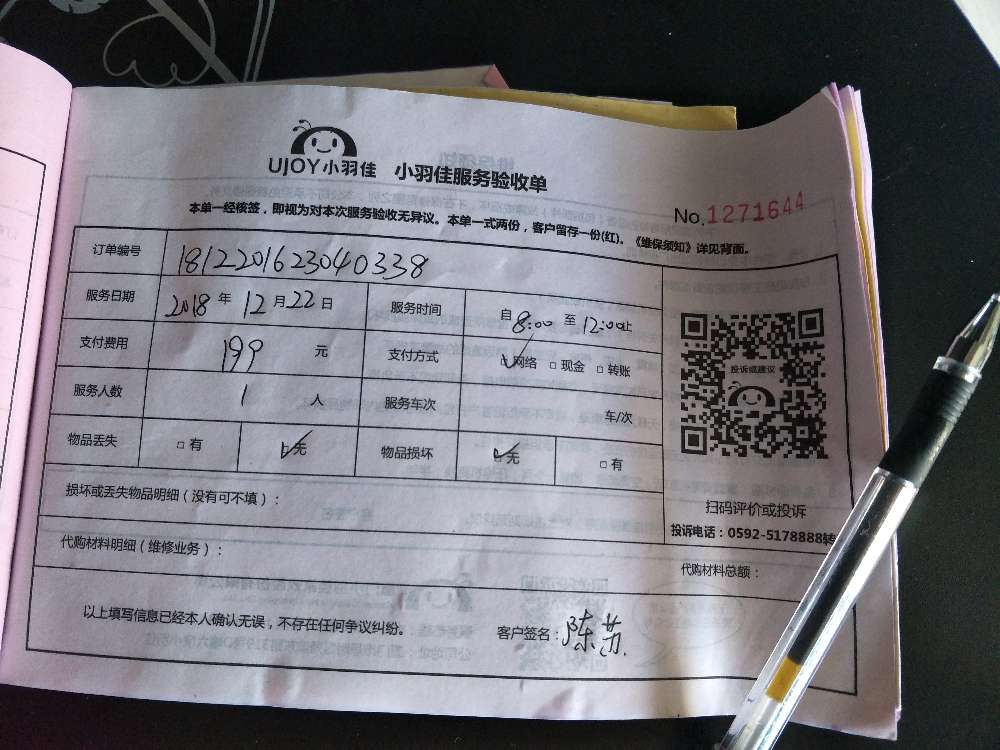 UJOY小羽佳 小羽佳服务验收单
No.1271644
本单一经核签，即视为对本次服务验收无异议。本单一式两份，客户留存一份(红)。《维保须知》详见背面。
订单编号 1812201623040338
服务日期 2018年12月22日 服务时间 自8:00至12:00止
支付费用 199 元 支付方式 网络 □现金 □转账
投诉或建议
服务人数 1 人 服务车次 车/次
物品丢失 □有 无 物品损坏 □无 □有
损坏或丢失物品明细（没有可不填）：
扫码评价或投诉
投诉电话：0592-5178888转
代购材料明细（维修业务）：
代购材料总额：
以上填写信息已经本人确认无误，不存在任何争议纠纷。 客户签名：陈苏